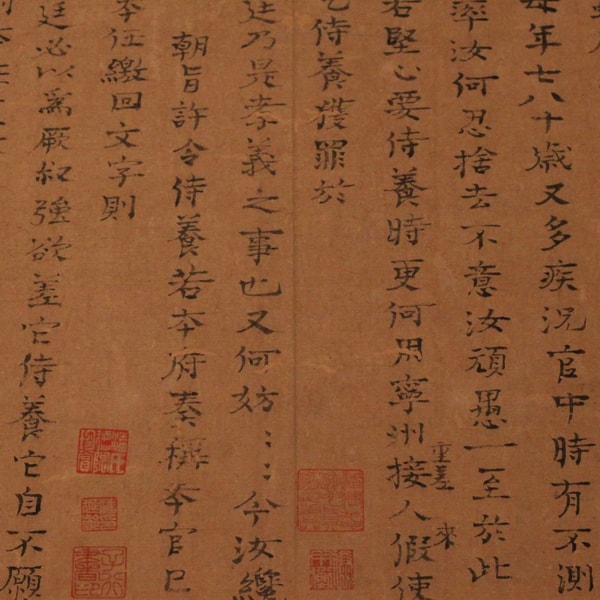 母年七八十歳又多疾况官中時有不測
率汝何忍捨去不意汝頑愚一至於此
若堅心要侍養時更何用寧州接人假使
重差 來
乞侍養獲罪於
廷乃是孝義之事也又何妨〻〻今汝纔
朝旨許令侍養若本府奏稱本官已
李任繳回文字則
廷必以為厥叔強欲差它侍養它自不願